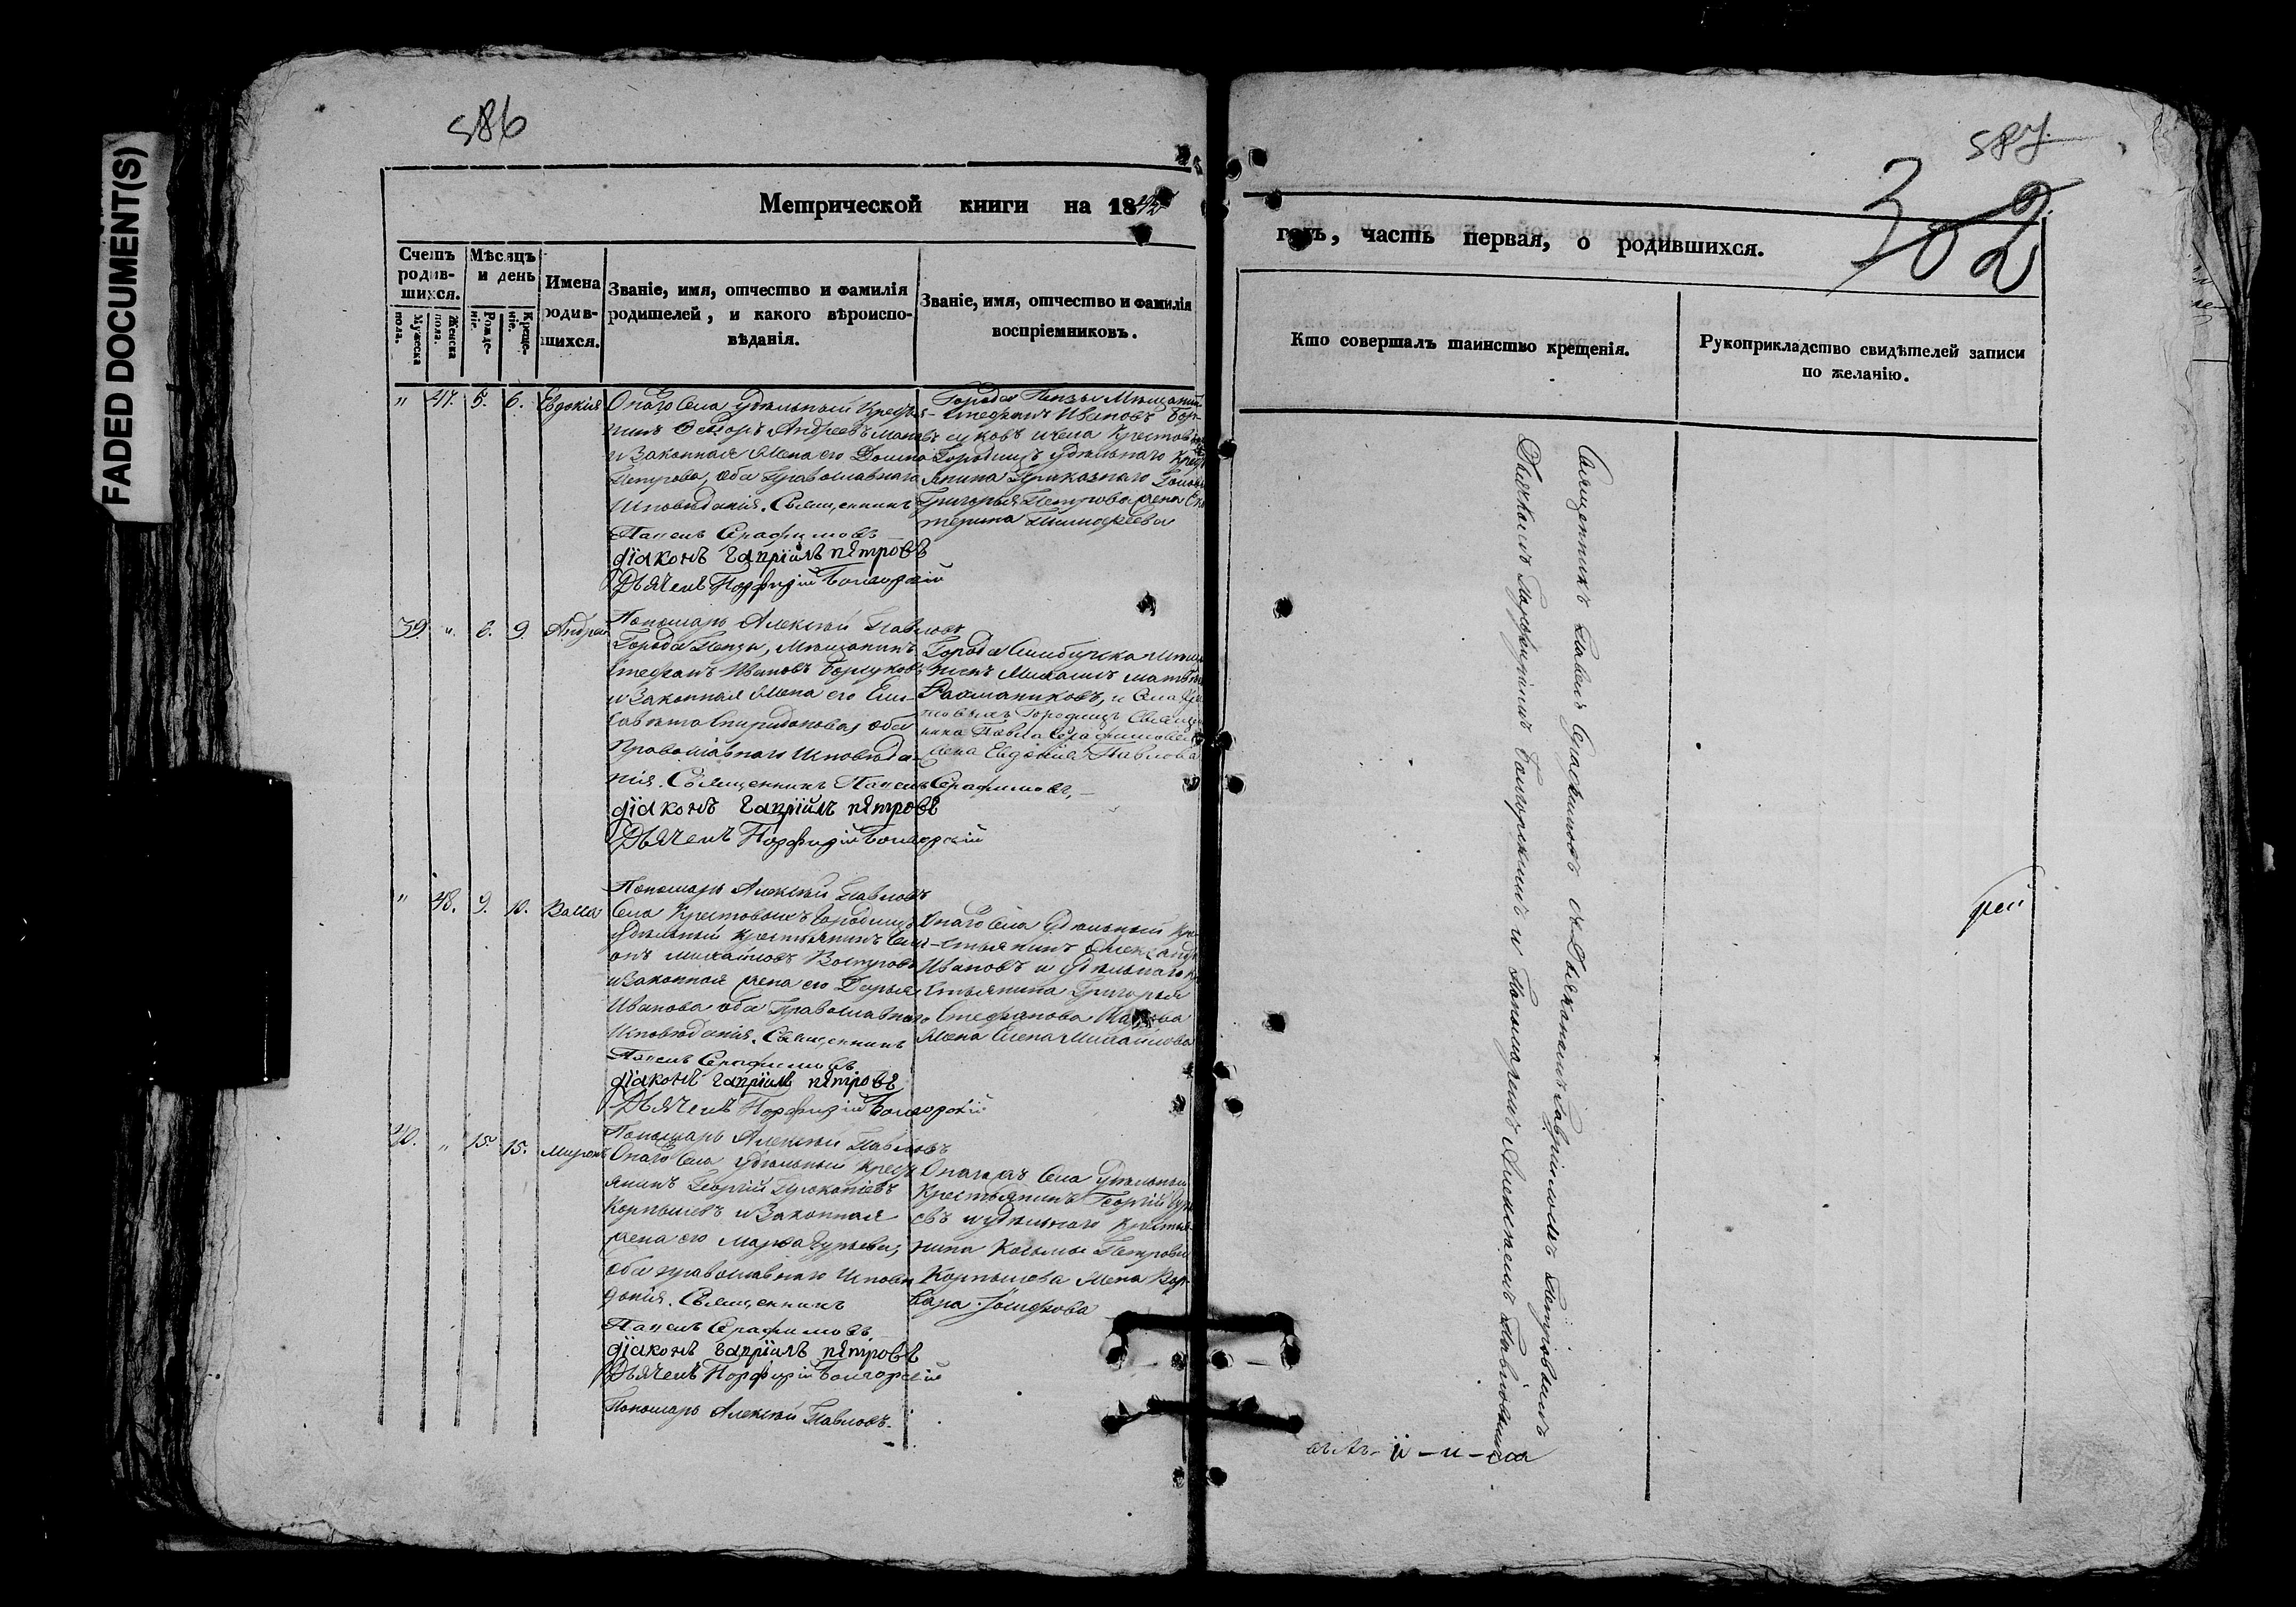 FADED DOCUMENT(S)
586
Метрической книги на 18
Счетъ родившихся.
Мѣсяцъ и день
Имена родившихся.
Званіе, имя, отчество и фамилія родителей, и какого вѣроисповѣданія.
Званіе, имя, отчество и фамилія воспріемниковъ.
Мужеска пола.
Женска пола.
Рожденіе.
Крещеніе.
" 47. 5. 6. Евдокія
Онаго Села Удѣльный Кресть
янинъ Ѳеодоръ Андреевъ
и Законная Жена его Домна
Петрова, оба Православнаго
Исповѣданія. Священникъ
Павелъ Серафимовъ
діаконъ гавріилъ пѣтровъ
Дьячекъ Порфирій Богородскій
Пономарь Алексѣй Павловъ
Города Пензы Мѣщанин
Стефанъ Ивановъ Бор-
суковъ и Села Крестовы
Городищъ Удѣльнаго Крест
янина Приказнаго Голов
Григорья Петрова жена Ека
терина Тимофеева
39. " 6. 9. Андрей
Города Пензы, Мѣщанинъ
Стефанъ Ивановъ Борсуковъ
и Законная Жена его Ели-
савета Спиридонова, оба
Православнаго Исповѣда-
нія. Священникъ Павелъ Серафимовъ,
діаконъ гавріилъ пѣтровъ
Дьячекъ Порфирій Богородскій
Пономарь Алексѣй Павловъ
Города Симбирска Мѣща
нинъ Михаилъ Матвѣе
Рахманиковъ, и Села Кре
стовыхъ Городищъ Священ
ника Павла Серафимова
жена Евдокія Павлова
" 48. 9. 10. Васса
Села Крестовыхъ Городищъ
Удѣльный крестьянинъ Сем-
онъ Михайловъ Востровъ
и Законная жена его Дарья
Иванова оба Православнаго
Исповѣданія. Священникъ
Павелъ Серафимовъ
діаконъ гавріилъ пѣтровъ
Дьячекъ Порфирій Богородскій
Пономарь Алексѣй Павловъ
Онаго Села Удѣльный Кре
стьянинъ Александр
Ивановъ и Удѣльнаго Кр
естьянина Григорья
Стефанова
Жена Елена Михайлова
40. " 15. 15. Миронъ
Онаго Села Удѣльный Крест
янинъ Георгій Прокопіевъ
Корнышевъ и Законная
жена его Марѳа Гурьева,
оба православнаго Исповѣ
данія. Священникъ
Павелъ Серафимовъ
діаконъ гавріилъ пѣтровъ
Дьячекъ Порфирій Богородскій
Пономарь Алексѣй Павловъ.
Онагожъ Села Удѣльный
Крестьянинъ Георгій Гурь
евъ и Удѣльнаго Крестья
нина Козьмы Петрова
Корнышева Жена Вар-
вара Іосифова
587.
302
годъ, часть первая, о родившихся.
Кто совершалъ таинство крещенія.
Рукоприкладство свидѣтелей записи по желанію.
Священникъ Павелъ Серафимовъ съ Дьякономъ Гавріиломъ Петровымъ
Дьячкомъ Порфиріемъ Богородскимъ и Пономаремъ Алексѣемъ Павловымъ
рей